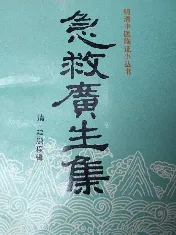 明清中医临证小丛书
急救廣生集
清